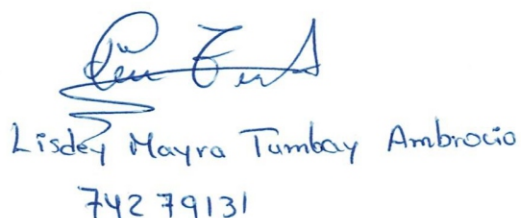 Lisdey Mayra Tumbay Ambrocio
742 79131